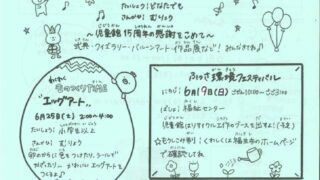 たいしょう：どなたでも
さんかひ：むりょう
～児童館15周年の感謝をこめて～
式典・クイズラリー・バルーンアート・作品展など！
ものつくりTIME
"エッグアート"
6月25日(土) 2:00～4:00
たいしょう：小学生以上
さんかひ：むりょう
卵のからに色をつけたり、シールを
エッグアートをつくるよ♪
ふっさ環境フェスティバル
にちじ：6月19日(日)
ばしょ：福祉センター
児童館はリサイクル工作のブースを出すよ！(予定)
☆もうしこみ等、くわしくは福生市のホームページ
で確認してね